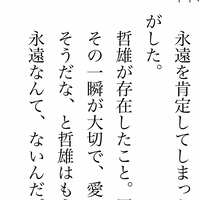 永遠を肯定してしまっ
がした。
哲雄が存在したこと。
その一瞬が大切で、愛
そうだな、と哲雄はも
永遠なんて、ないんだ